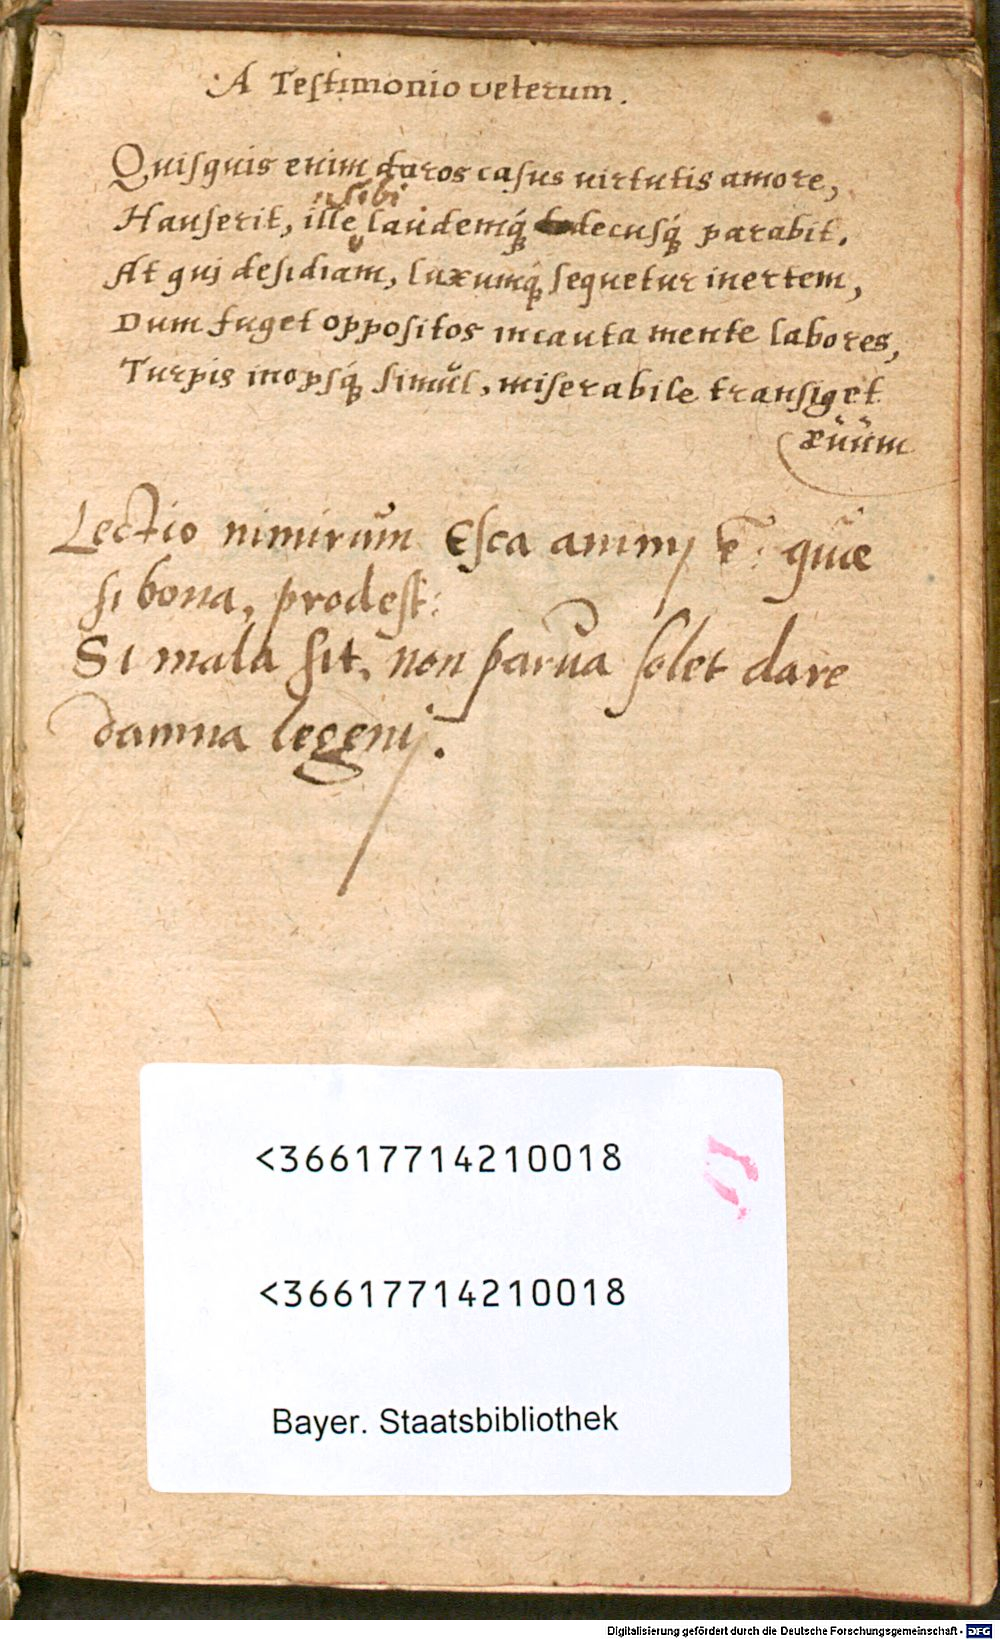 A Testimonio veterum.
Quisquis enim duros casus uirtutis amore,
sibi
Hauserit, ille laudemq́ue decusq́ue parabit.
At qui desidiam, luxumq́ue sequetur inertem,
Dum fuget oppositos incauta mente labores,
Turpis inopsq́ue simul, miserabile transiget
æuum
Lectio nimirum Esca animj e͞: quæ
si bona, prodest:
Si mala sit, non parua solet dare
damna legenj.
<36617714210018
<36617714210018
Bayer. Staatsbibliothek
Digitalisierung gefördert durch die Deutsche Forschungsgemeinschaft - DFG